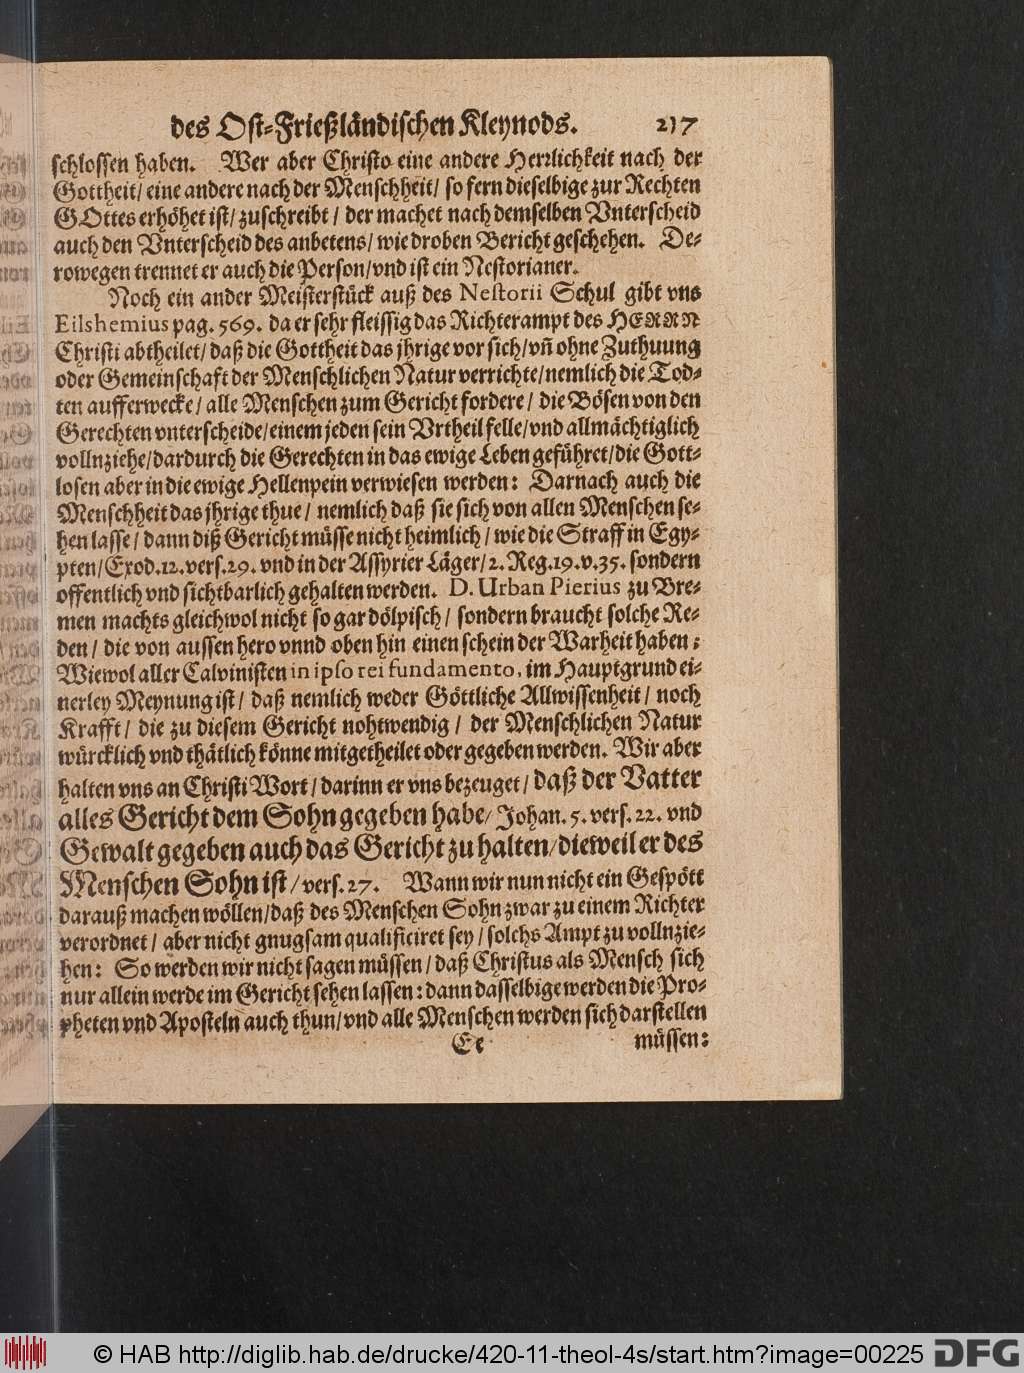 des Ost-Frießländischen Kleynods. 217
schlossen haben. Wer aber Christo eine andere Herrlichkeit nach der
Gottheit/ eine andere nach der Menschheit/ so fern dieselbige zur Rechten
GOttes erhöhet ist/ zuschreibt/ der machet nach demselben Vnterscheid
auch den Vnterscheid des anbetens/ wie droben Bericht geschehen. De-
rowegen trennet er auch die Person/ vnd ist ein Nestorianer.
Noch ein ander Meisterstück auß des Nestorii Schul gibt vns
Eilshemius pag. 569. da er sehr fleissig das Richterampt des HERRN
Christi abtheilet/ daß die Gottheit das jhrige vor sich/ vñ ohne Zuthuung
oder Gemeinschaft der Menschlichen Natur verrichte/ nemlich die Tod-
ten aufferwecke/ alle Menschen zum Gericht fordere/ die Bösen von den
Gerechten vnterscheide/ einem jeden sein Vrtheil felle/ vnd allmächtiglich
vollnziehe/ dardurch die Gerechten in das ewige Leben geführet/ die Gott-
losen aber in die ewige Hellenpein verwiesen werden: Darnach auch die
Menschheit das jhrige thue/ nemlich daß sie sich von allen Menschen se-
hen lasse/ dann diß Gericht müsse nicht heimlich/ wie die Straff in Egy-
pten/ Exod. 12. vers. 29. vnd in der Assyrier Läger/ 2. Reg. 19. v. 35. sondern
offentlich vnd sichtbarlich gehalten werden. D. Urban Pierius zu Bre-
men machts gleichwol nicht so gar dölpisch/ sondern braucht solche Re-
den/ die von aussen hero vnnd oben hin einen schein der Warheit haben:
Wiewol aller Calvinisten in ipso rei fundamento, im Hauptgrund ei-
nerley Meynung ist/ daß nemlich weder Göttliche Allwissenheit/ noch
Krafft/ die zu diesem Gericht nohtwendig/ der Menschlichen Natur
würcklich vnd thätlich könne mitgetheilet oder gegeben werden. Wir aber
halten vns an Christi Wort/ darinn er vns bezeuget/ daß der Vatter
alles Gericht dem Sohn gegeben habe/ Johan. 5. vers. 22. vnd
Gewalt gegeben auch das Gericht zu halten/ dieweil er des
Menschen Sohn ist/ vers. 27. Wann wir nun nicht ein Gespött
darauß machen wöllen/ daß des Menschen Sohn zwar zu einem Richter
verordnet/ aber nicht gnugsam qualificiret sey/ solchs Ampt zu vollnzie-
hen: So werden wir nicht sagen müssen/ daß Christus als Mensch sich
nur allein werde im Gericht sehen lassen: dann dasselbige werden die Pro-
pheten vnd Aposteln auch thun/ vnd alle Menschen werden sich darstellen
Ee müssen:
© HAB http://diglib.hab.de/drucke/420-11-theol-4s/start.htm?image=00225 DFG